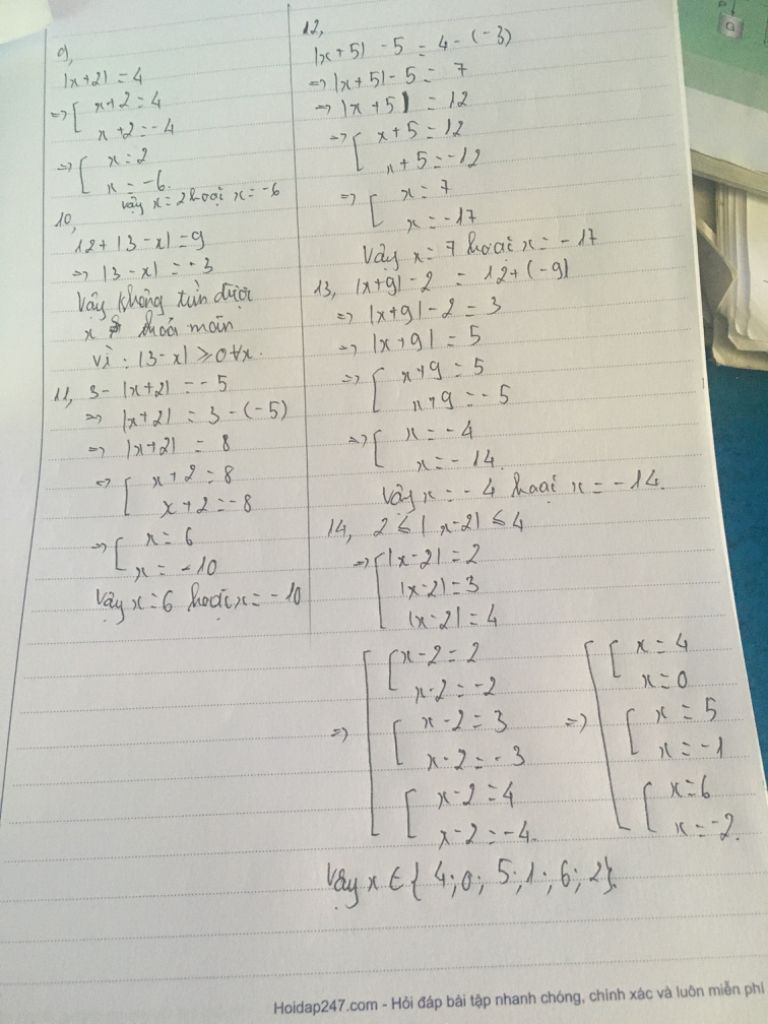 9,
|x+2| = 4
=> [ x+2 = 4
x+2 = -4
=> [ x = 2
x = -6.
Vậy x = 2 hoặc x = -6
10,
12 + |3-x| = 9
=> |3-x| = -3
Vậy không tìm được
x thoả mãn
vì : |3-x| ≥ 0 ∀x.
11, 3 - |x+2| = -5
=> |x+2| = 3-(-5)
=> |x+2| = 8
=> [ x+2 = 8
x+2 = -8
=> [ x = 6
x = -10
Vậy x = 6 hoặc x = -10
12,
|x+5| - 5 = 4-(-3)
=> |x+5| - 5 = 7
=> |x+5| = 12
=> [ x+5 = 12
x+5 = -12
=> [ x = 7
x = -17
Vậy x = 7 hoặc x = -17
13, |x+9| - 2 = 12+(-9)
=> |x+9| - 2 = 3
=> |x+9| = 5
=> [ x+9 = 5
x+9 = -5
=> [ x = -4
x = -14.
Vậy x = -4 hoặc x = -14.
14, 2 ≤ |x-2| ≤ 4
=> [ |x-2| = 2
|x-2| = 3
|x-2| = 4
=> [ [ x-2 = 2 => [ [ x = 4
x-2 = -2 x = 0
[ x-2 = 3 [ x = 5
x-2 = -3 x = -1
[ x-2 = 4 [ x = 6
x-2 = -4. x = -2.
Vậy x ∈ { 4; 0; 5; 1; 6; 2}.
Hoidap247.com - Hỏi đáp bài tập nhanh chóng, chính xác và luôn miễn phí